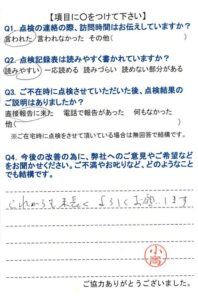 【項目に〇をつけて下さい】
Q1. 点検の連絡の際、訪問時間はお伝えしていますか?
言われた/言われなかった その他( )
Q2. 点検記録表は読みやすく書かれていますか?
読みやすい 一応読める 読みづらい 読めない部分がある
Q3. ご不在時に点検させていただいた後、点検結果の
ご説明はありましたか?
直接報告に来た 電話で報告があった 何もなかった
他( )
※ご在宅時に点検をさせて頂いている場合は無回答で結構です。
Q4. 今後の改善の為に、弊社へのご意見やご希望など
をお聞かせください。ご不満やお叱りなど、どのようなこと
でも結構です。
これからも末長くよろしくお願いします
小高
ご協力ありがとうございました。